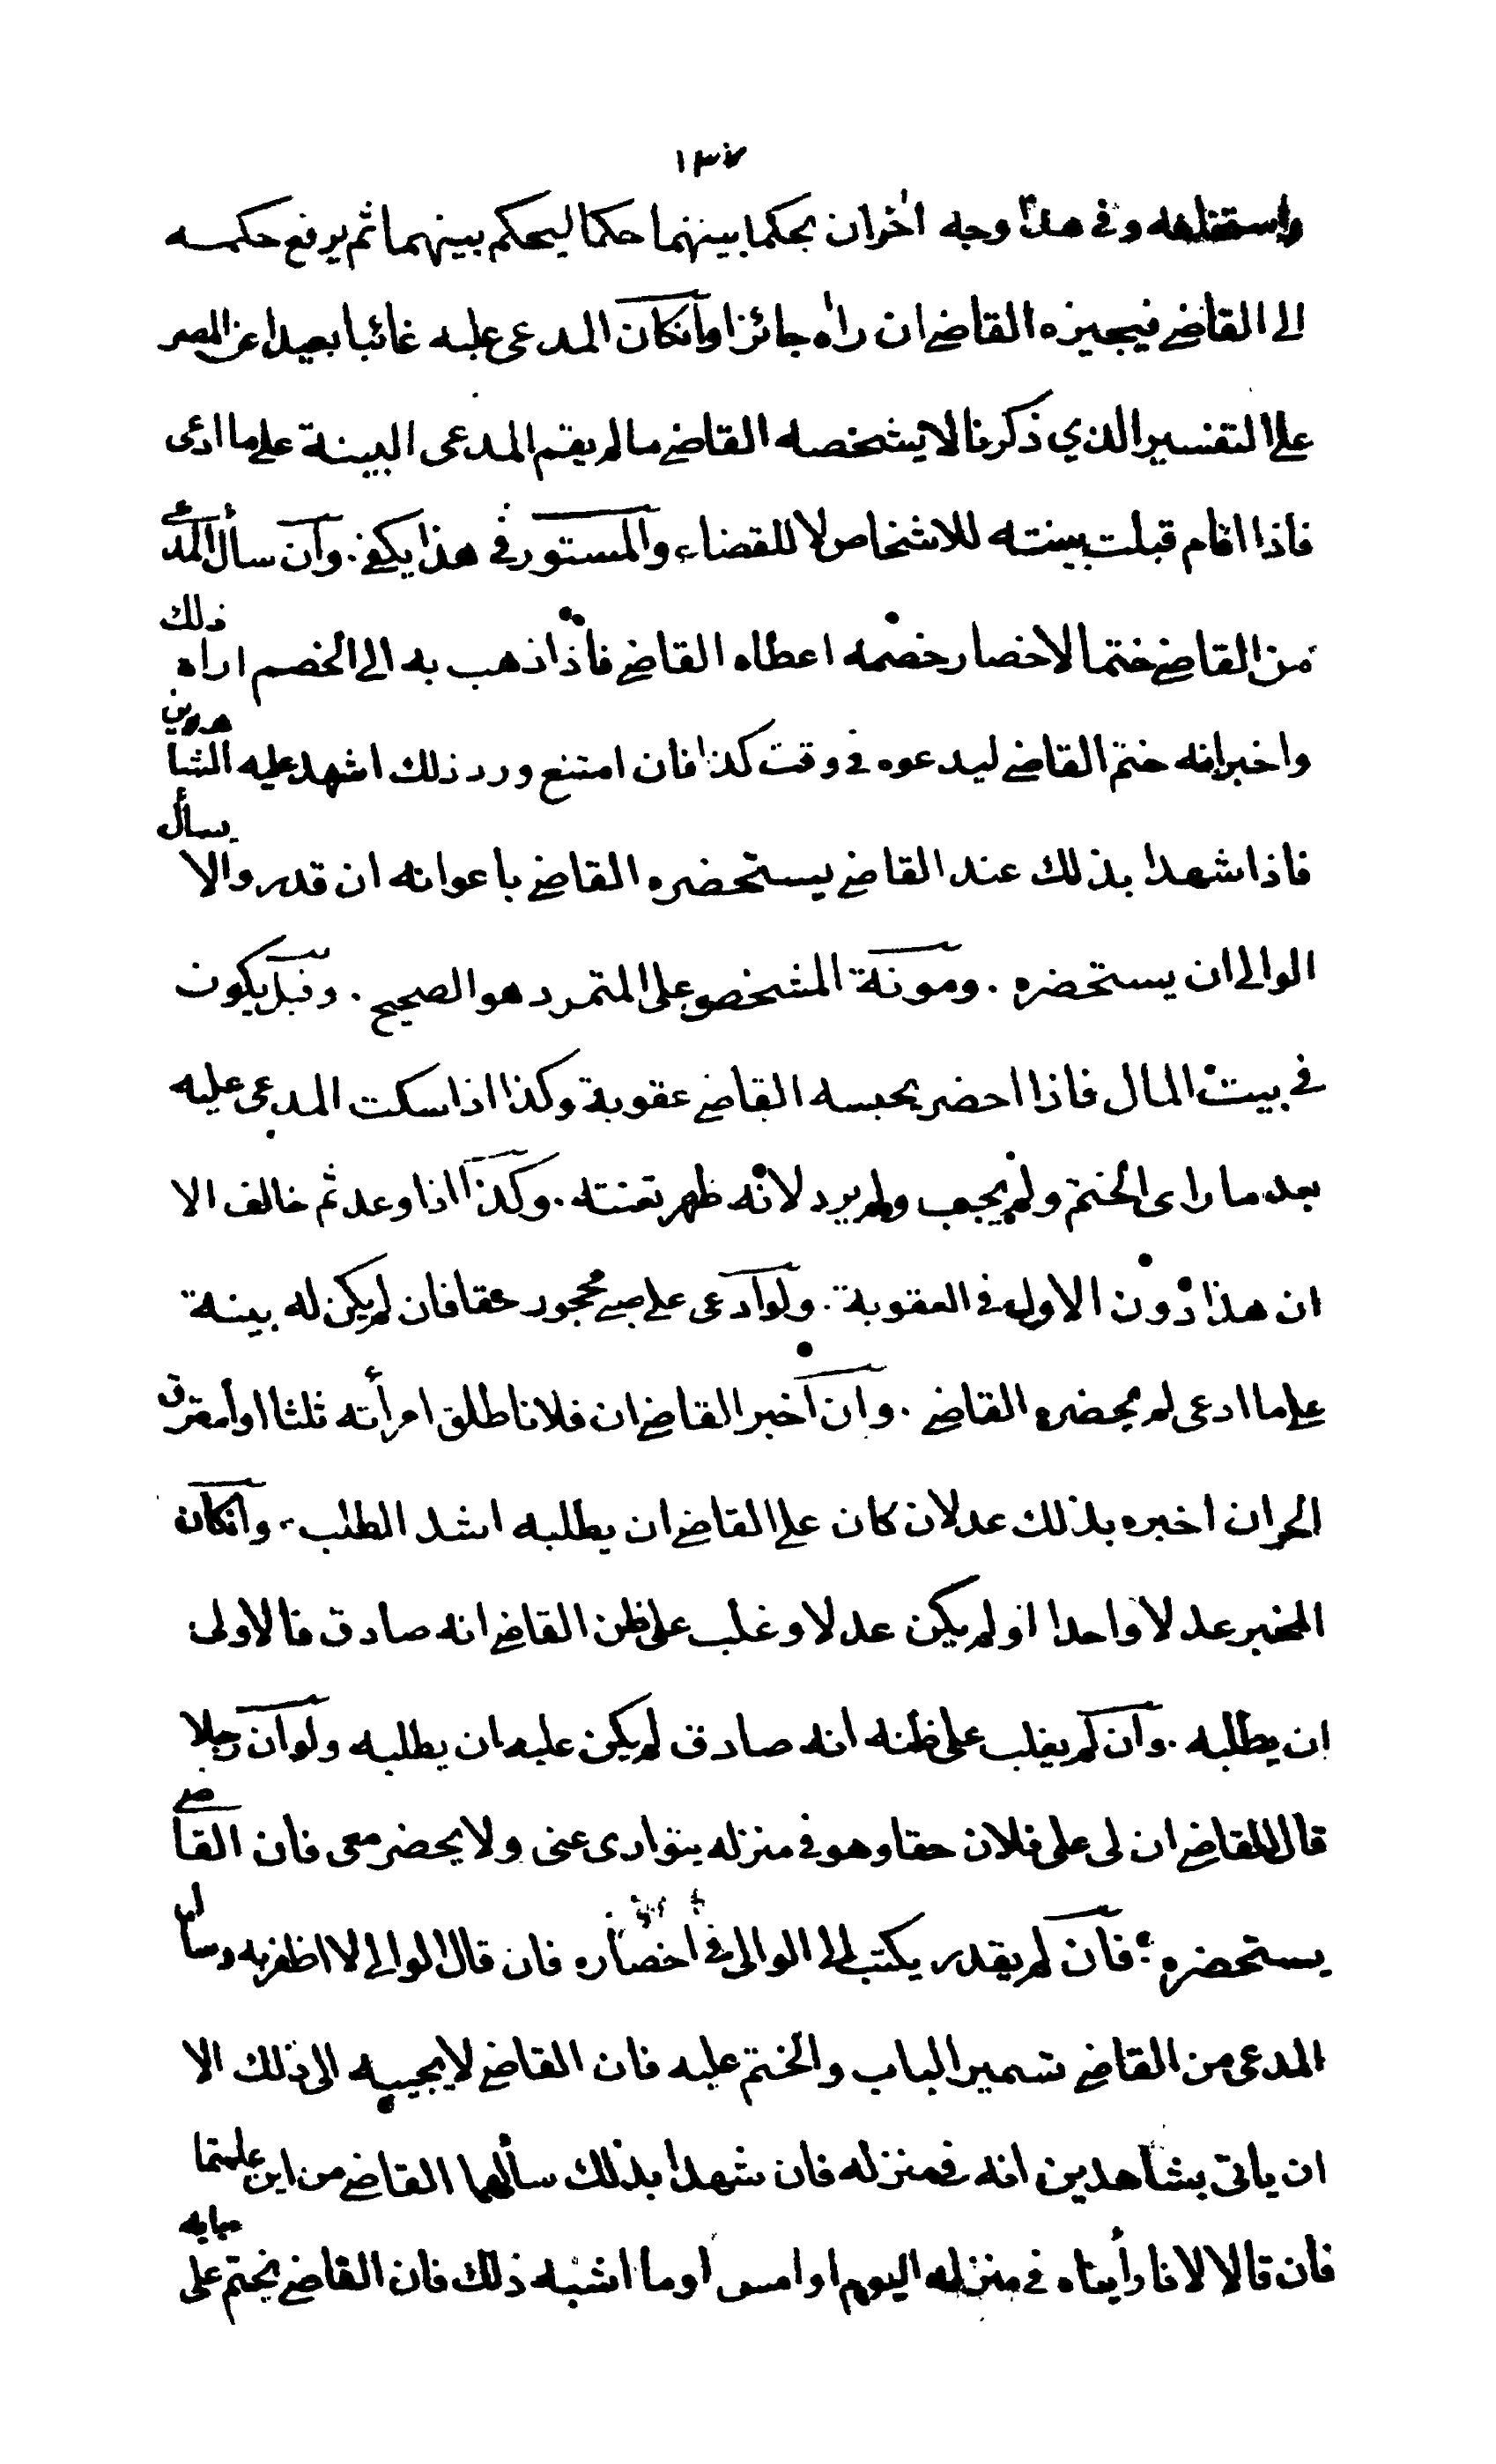 ١٣٧
واستقلفه وفى هذا وجه اخر ان يحكما بينهما حكما ليحكم بينهما ثم يرفع حكمه
الى القاضى فيجيزه القاضى ان راه جائزا وانكان المدعى عليه غائبا بعيدا عن المصر
على التفسير الذي ذكرنا لا يشخصه القاضى مالم يقم المدعى البينة على ما ادعى
فاذا اقام قبلت بينته للاشخاص لا للقضاء والمستور فى هذا يكفى. وان سأل المدعى
من القاضى ختما لاحضار خصمه اعطاه القاضى فاذا ذهب به الى الخصم اراه ذلك
واخبر انه ختم القاضى ليدعوه فى وقت كذا فان امتنع ورد ذلك اشهد عليه الشاهدين
فاذا شهدا بذلك عند القاضى يستحضره القاضى باعوانه ان قدر والا يسأل
الوالى ان يستحضره. ومونة المشخص على المتمرد هو الصحيح. وقيل يكون
فى بيت المال فاذا احضر يحبسه القاضى عقوبة وكذا اذا سكت المدعى عليه
بعد ما راى الختم ولم يجب ولم يرد لانه ظهر تعنته. وكذا اذا وعد ثم خالف الا
ان هذا دون الاول فى العقوبة. ولو ادعى على صبى محجور حقا فان لم يكن له بينة
على ما ادعى لم يحضره القاضى. وان اخبر القاضى ان فلانا طلق امرأته ثلثا او استرق
الحر ان اخبره بذلك عدلان كان على القاضى ان يطلبه اشد الطلب. وانكان
المخبر عدلا واحدا او لم يكن عدلا وغلب على ظن القاضى انه صادق فالاولى
ان يطلبه. وان لم يغلب على ظنه انه صادق لم يكن عليه ان يطلبه ولو ان رجلا
قال للقاضى ان لى على فلان حقا وهو فى منزله يتوارى عنى ولا يحضر معى فان القاضى
يستحضره فان لم يقدر يكتب الى الوالى فى احضاره فان قال الوالى لا اظفر به وسأل
المدعى من القاضى تسمير الباب والختم عليه فان القاضى لا يجيبه الى ذلك الا
ان ياتى بشاهدين انه فى منزله فان شهدا بذلك سألهما القاضى من اين علمتما
فان قالا لانا رأيناه فى منزله اليوم او امس او ما اشبه ذلك فان القاضى يختم على بابه